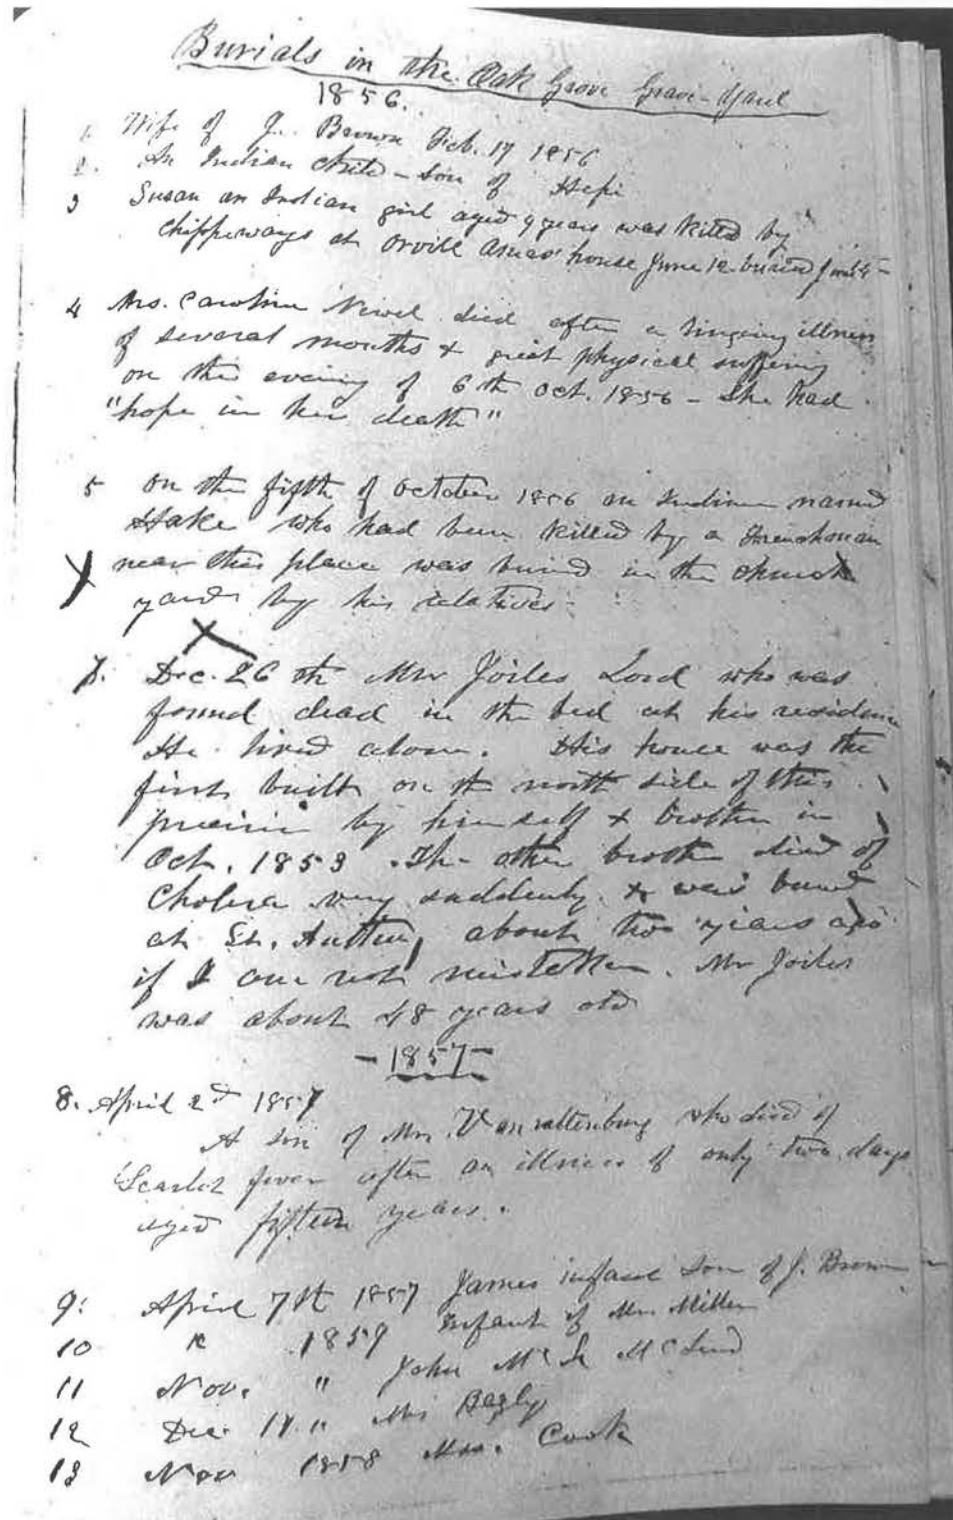 Burials in the Oak Grove Grave-Yard
1856.
1. Wife of J. Brown Feb. 17 1856
2. An Indian Child - Son of Hepi
3 Susan an Indian girl aged 9 years was killed by
Chippeways at Orvill house June 12 buried June
4 Mrs. Caroline Newel died after a lingering illness
of several months & great physical suffering
on the evening of 6th Oct. 1856 - She had
"hope in her death"
5 On the fifth of October 1856 an Indian named
Hake who had been killed by a Frenchman
near this place was buried in the church
yard by his relatives
7. Dec. 26th Mr Joiles Lord who was
found dead in the bed at his residence
He lived alone. His house was the
first built on the north side of this
prairie by himself & brother in
Oct. 1853. The other brother died of
Cholera very suddenly & was buried
at St. about two years ago
if I am not mistaken. Mr Joiles
was about 48 years old
- 1857 -
8. April 2nd 1857
A son of Mr. Vanvattenburg who died of
Scarlet fever after an illness of only two days
aged fifteen years.
9. April 7th 1857 James infant son of J. Brown
10 " 1857 Infant of Mr. Miller
11 Nov. " John
12 Dec. " Mrs Bagly
13 Nov 1858 Mrs. Cook